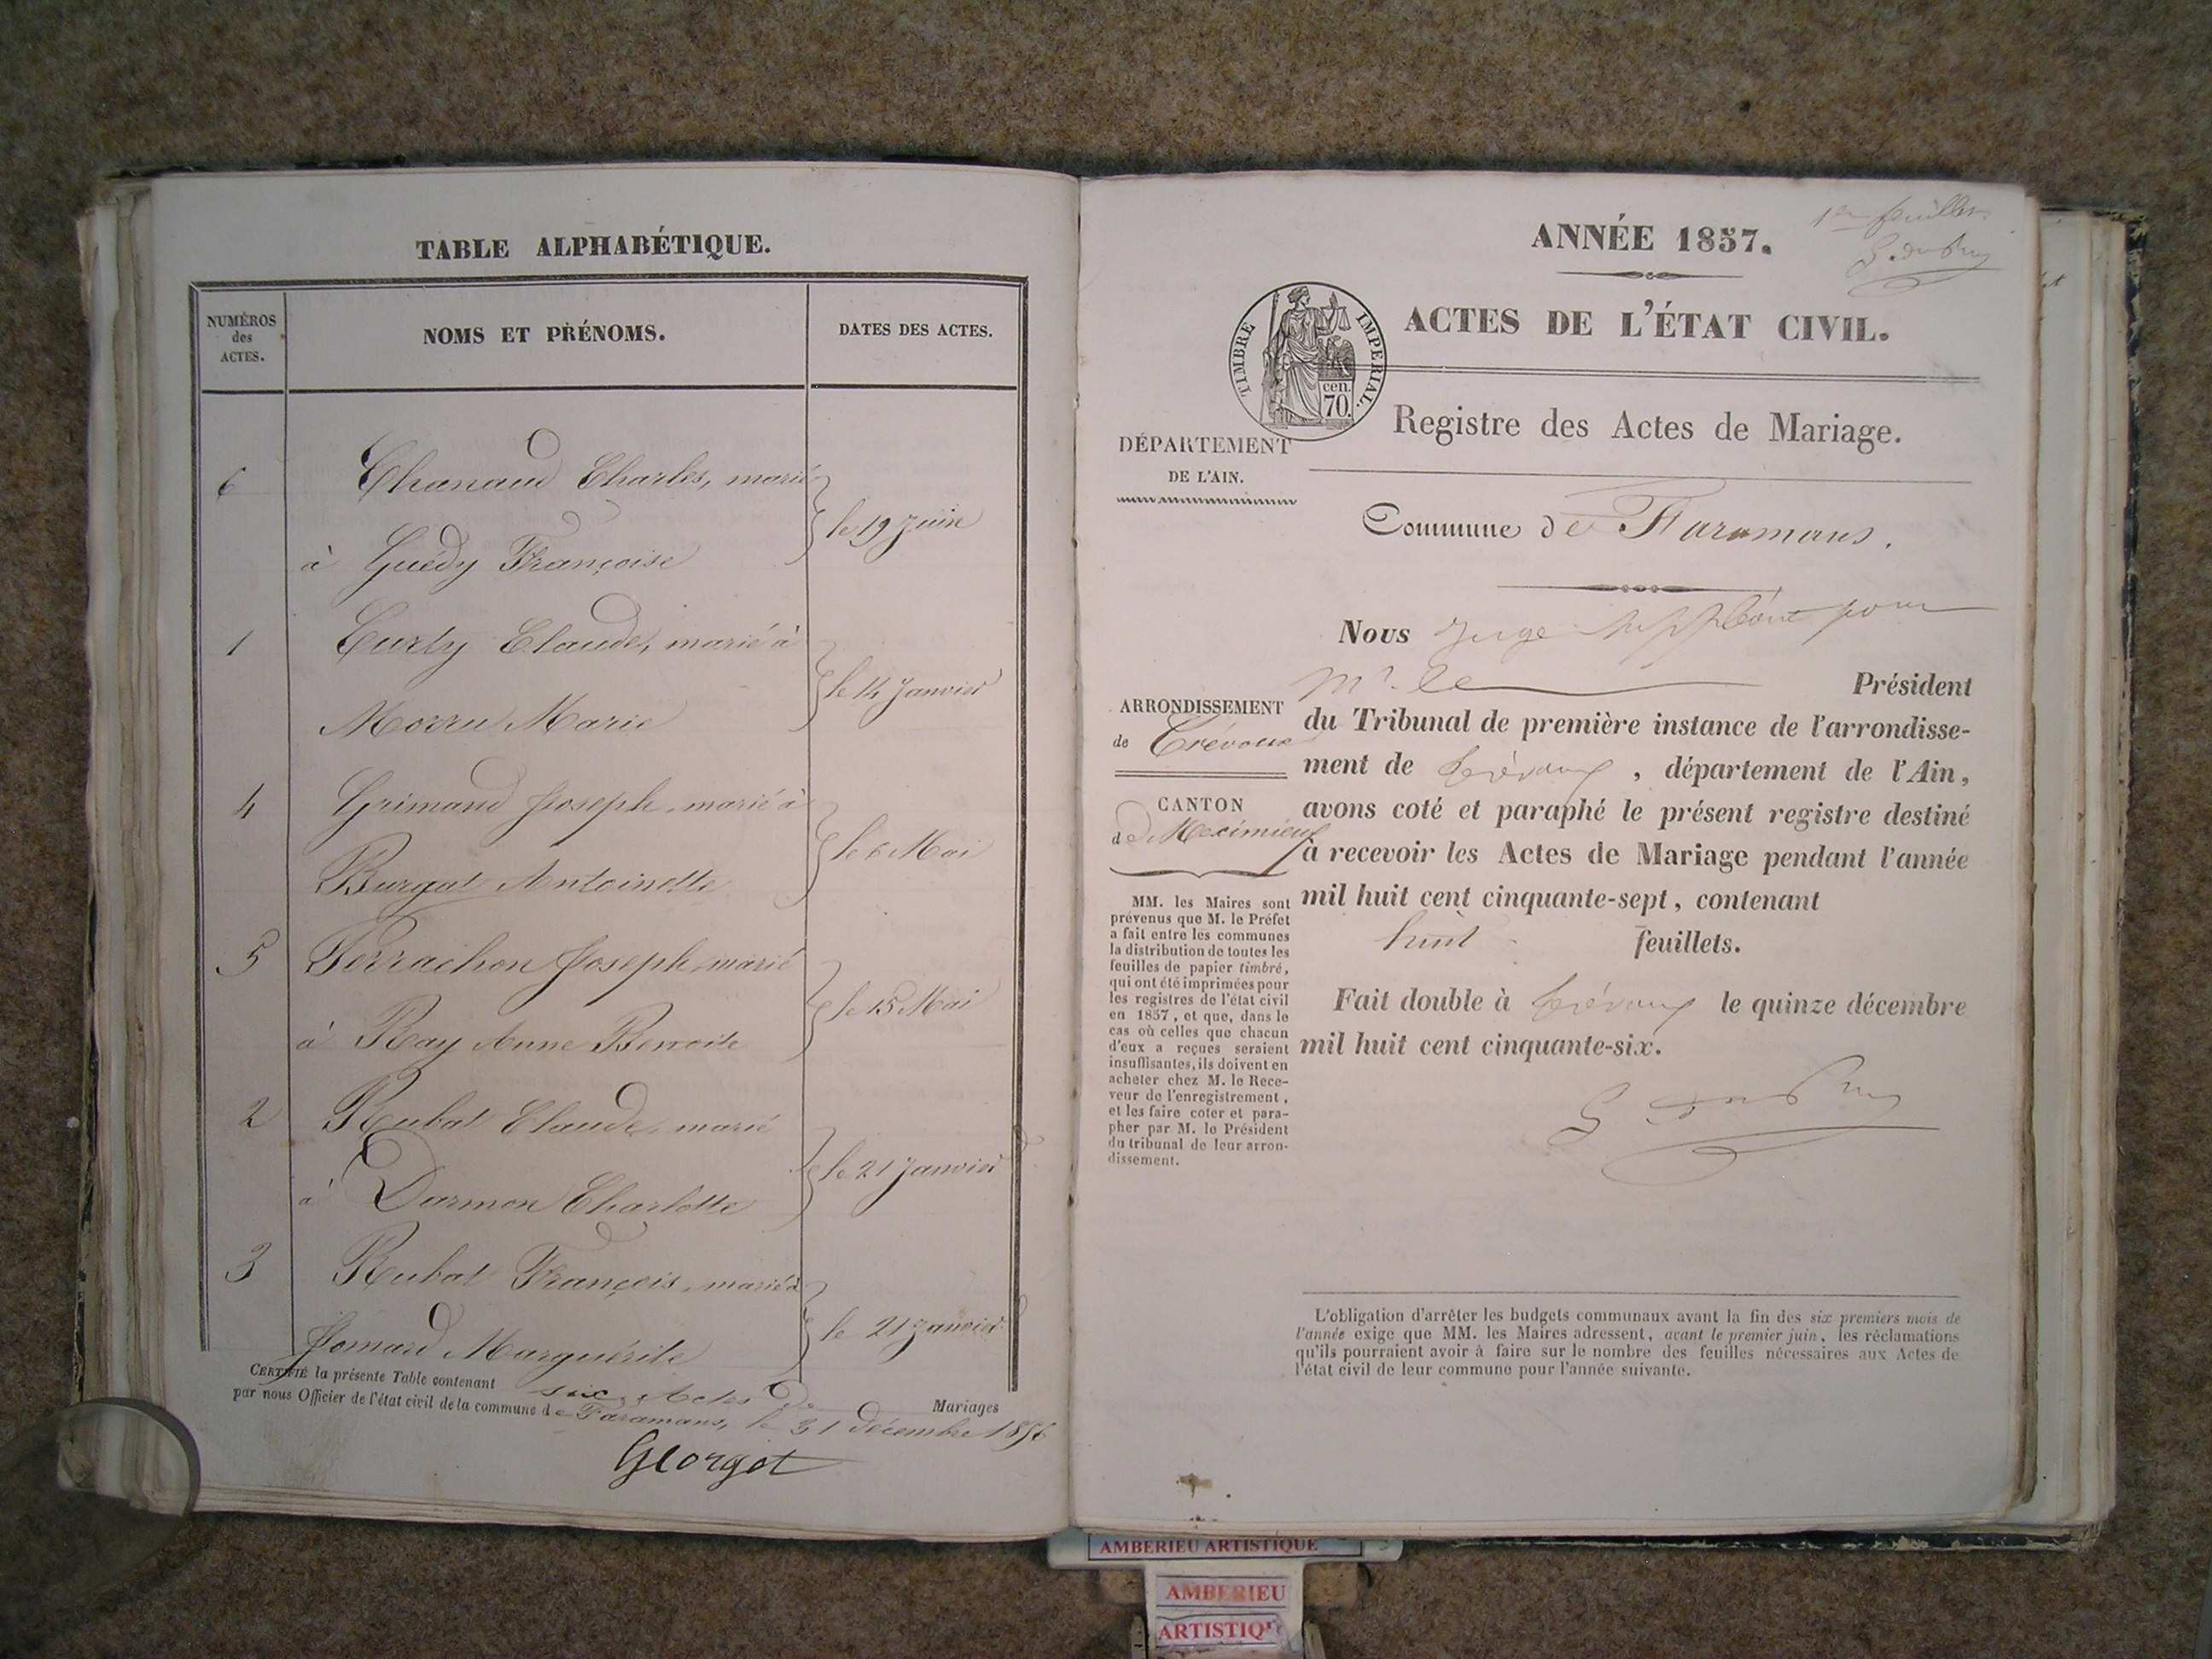 TABLE ALPHABÉTIQUE.
NUMÉROS
des
ACTES.
NOMS ET PRÉNOMS.
DATES DES ACTES.
6 Chanaud Charles, marié
à Guédy Françoise
le 19 Juin
1 Curty Claude, marié à
Morru Marie
le 14 Janvier
4 Grimand Joseph, marié à
Burgat Antoinette
le 6 Mai
5 Perrachon Joseph, marié
à Ray Anne Benoite
le 15 Mai
2 Rubat Claude, marié
à Darmon Charlotte
le 21 Janvier
3 Rubat François, marié à
Jomard Marguérite
le 21 Janvier
CERTIFIÉ la présente Table contenant six Actes de Mariages
par nous Officier de l'état civil de la commune de Faramans, le 31 décembre 1856
Georgot
1er feuillet
ANNÉE 1857.
ACTES DE L'ÉTAT CIVIL.
TIMBRE IMPERIAL.
cen.
70.
Registre des Actes de Mariage.
DÉPARTEMENT
DE L'AIN.
Commune de Faramans.
ARRONDISSEMENT
de Trévoux
CANTON
de de Meximieux
MM. les Maires sont
prévenus que M. le Préfet
a fait entre les communes
la distribution de toutes les
feuilles de papier timbré,
qui ont été imprimées pour
les registres de l'état civil
en 1857, et que, dans le
cas où celles que chacun
d'eux a reçues seraient
insuffisantes, ils doivent en
acheter chez M. le Rece-
veur de l'enregistrement,
et les faire coter et para-
pher par M. le Président
du tribunal de leur arron-
dissement.
Nous Juge suppléant pour
Mr. le Président
du Tribunal de première instance de l'arrondisse-
ment de Trévoux, département de l'Ain,
avons coté et paraphé le présent registre destiné
à recevoir les Actes de Mariage pendant l'année
mil huit cent cinquante-sept, contenant
huit feuillets.
Fait double à Trévoux le quinze décembre
mil huit cent cinquante-six.
L'obligation d'arrêter les budgets communaux avant la fin des six premiers mois de
l'année exige que MM. les Maires adressent, avant le premier juin, les réclamations
qu'ils pourraient avoir à faire sur le nombre des feuilles nécessaires aux Actes de
l'état civil de leur commune pour l'année suivante.
AMBERIEU ARTISTIQUE
AMBERIEU
ARTISTIQ